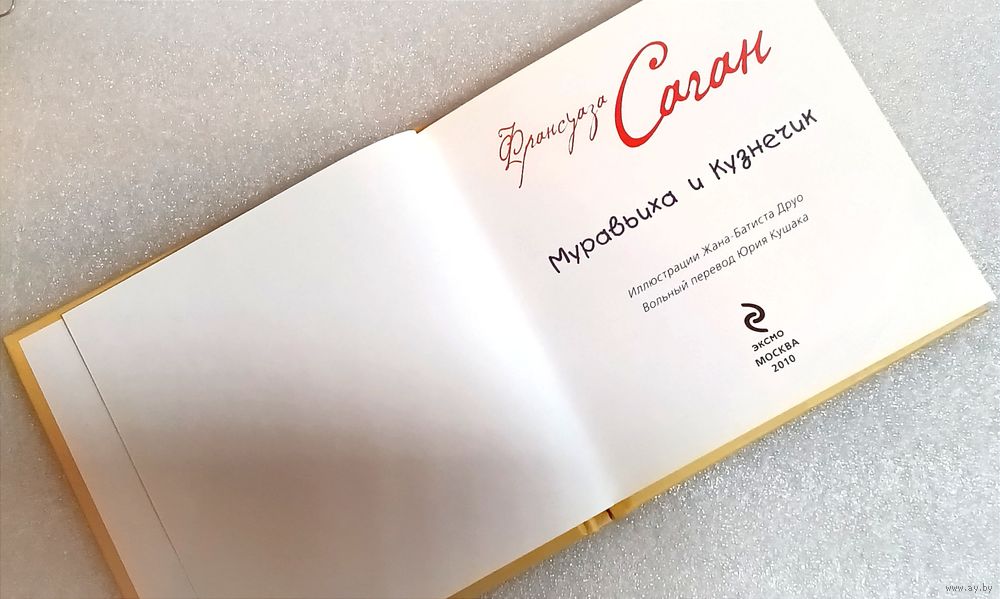 Франсуаза Саган
Муравьиха и Кузнечик
Иллюстрации Жана-Батиста Друо
Вольный перевод Юрия Кушака
ЭКСМО
МОСКВА
2010
www.ay.by